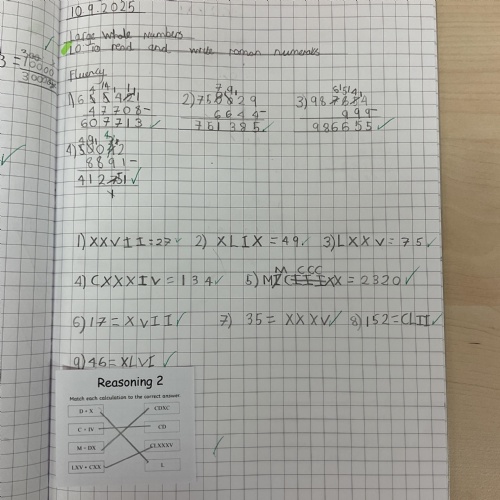 10.9.2025
Large Whole Numbers
TO: to read and write roman numerals
Fluency
1) 655421 2) 758029 3) 987654
47708- 6644- 999-
607713 751385 986655
4) 50142
8891-
41251
1) XXVII=27 2) XLIX=49 3) LXXV=75
4) CXXXIV=134 5) MMCCCXX=2320
6) 17=XVII 7) 35=XXXV 8) 152=CLII
9) 46=XLVI
Reasoning 2
Match each calculation to the correct answer.
D ÷ X CDXC
C ÷ IV CD
M − DX CLXXXV
LXV + CXX L